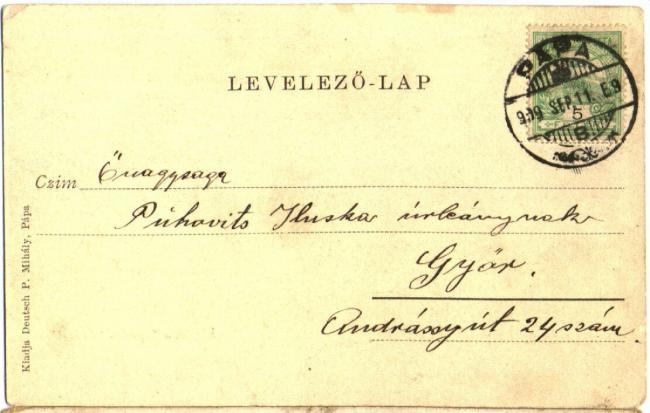 LEVELEZŐ-LAP
PÁPA
SEP. 11. E 9
5
B
Czim Őnagysaga
Púhovits Iluska úrleánynak
Győr.
Andrássyút 24 szám.
Kiadja Deutsch P. Mihály, Pápa